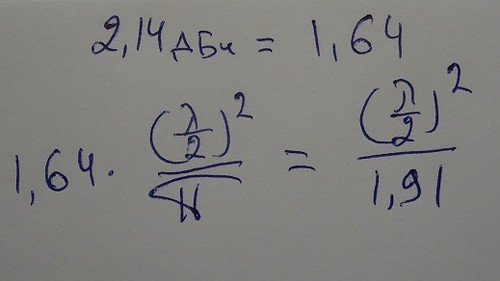 2,14 дБи = 1,64
1,64 · (λ/2)² / π = (λ/2)² / 1,91